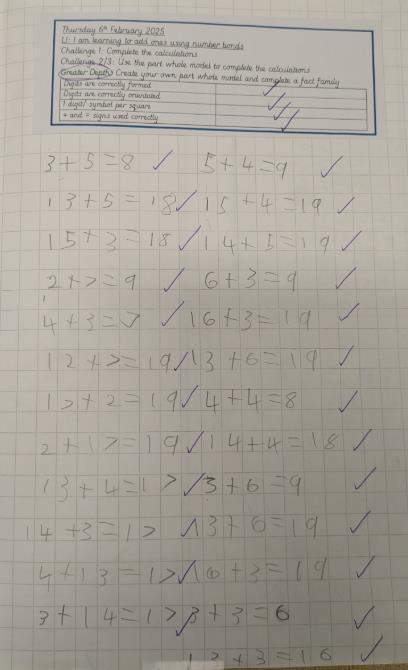 Thursday 6th February 2025
LI: I am learning to add ones using number bonds
Challenge 1: Complete the calculations
Challenge 2/3: Use the part whole model to complete the calculations
Greater Depth: Create your own part whole model and complete a fact family
Digits are correctly formed
Digits are correctly orientated
1 digit/ symbol per square
+ and = signs used correctly
3+5=8 5+4=9
13+5=18 15+4=19
15+3=18 14+5=19
2+7=9 6+3=9
4+3=7 16+3=19
12+7=19 13+6=19
17+2=19 4+4=8
2+17=19 14+4=18
13+4=17 3+6=9
14+3=17 13+6=19
4+13=17 16+3=19
3+14=17 3+3=6
13+3=16